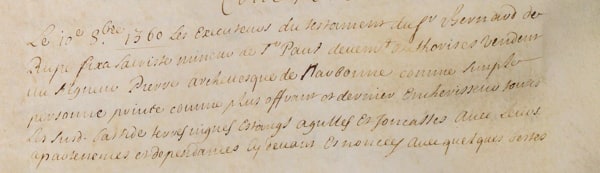 Le 10e 8bre 1360 Les Executeurs du testament du fr Bernard de
Rupe fixa sacriste mineur de St Paul deuemt authorises vendent
au seigneur Pierre archevesque de Narbonne comme simple
personne privée comme plus offrant et dernier Encherisseur toutes
les susd. Bastide terres vignes Estangs agulles Et foncalles avec Leurs
apartenences et dependances cy devant Enoncées avec quelques bestes